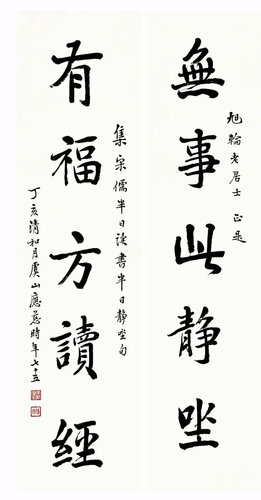 無事此靜坐
旭輪老居士 正是
有福方讀經
集宋儒半日讀書半日靜坐句
丁亥清和月虞山應慈時年七十五